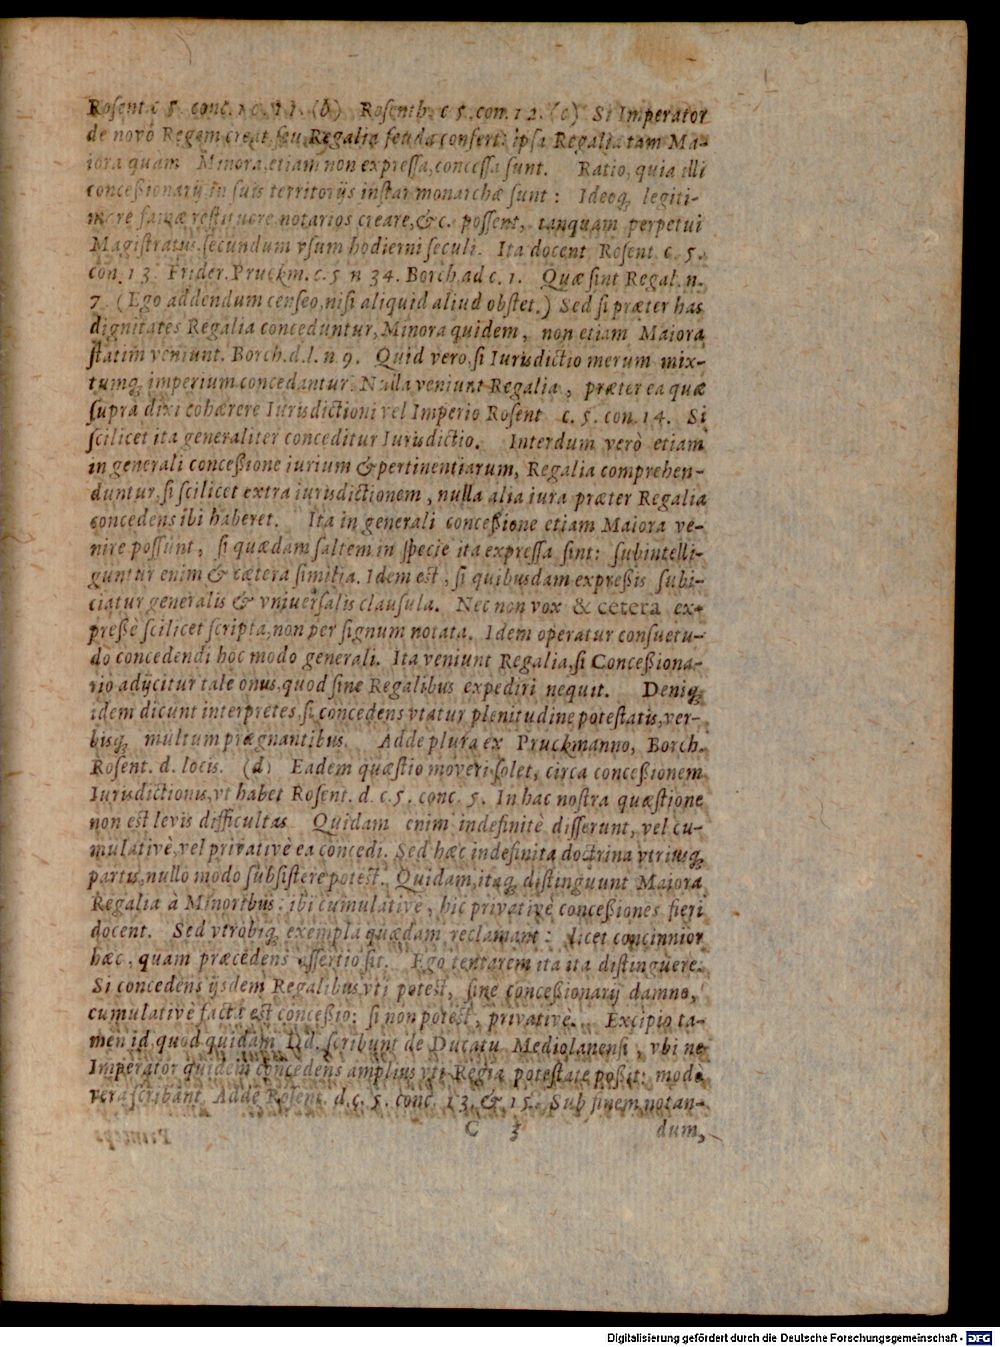 Roſent c 5. conc. 10. 11. (b) Roſenth. c 5. con. 12. (c) Si Imperator
de novo Regem creat, ſeu Regalia feuda confert: ipſa Regalia tam Ma-
iora quam Minora, etiam non expreſſa, conceſſa ſunt. Ratio, quia illi
conceßionarij in ſuis territorijs inſtar monarchæ ſunt: Ideoq́; legiti-
mare famæ reſtituere notarios creare, &c. poſſent, tanquam perpetui
Magiſtratus, ſecundum vſum hodierni ſeculi. Ita docent Roſent. c. 5.
con. 13. Frider. Pruckm. c. 5 n 34. Borch. ad c. 1. Quæ ſint Regal. n.
7. (Ego addendum cenſeo, niſi aliquid aliud obſtet.) Sed ſi præter has
dignitates Regalia conceduntur, Minora quidem, non etiam Maiora
ſtatim veniunt. Borch. d. l. n 9. Quid vero, ſi Iurisdictio merum mix-
tumq́; imperium concedantur. Nulla veniunt Regalia, præter ea quæ
ſupra dixi cohærere Iurisdictioni vel Imperio Roſent c. 5. con. 14. Si
ſcilicet ita generaliter conceditur Iurisdictio. Interdum verò etiam
in generali conceßione iurium & pertinentiarum, Regalia comprehen-
duntur, ſi ſcilicet extra iurisdictionem, nulla alia iura præter Regalia
concedens ibi haberet. Ita in generali conceßione etiam Maiora ve-
nire poſſunt, ſi quædam ſaltem in ſpecie ita expreſſa ſint: ſubintelli-
guntur enim & cætera ſimilia. Idem est, ſi quibusdam expreßis ſubi-
ciatur generalis & vniuerſalis clauſula. Nec non vox & cetera ex-
preßè ſcilicet ſcripta, non per ſignum notata. Idem operatur conſuetu-
do concedendi hoc modo generali. Ita veniunt Regalia, ſi Conceßiona-
rio adijcitur tale onus, quod ſine Regalibus expediri nequit. Deniq́;
idem dicunt interpretes, ſi concedens vtatur plenitudine poteſtatis, ver-
bisq́; multum prægnantibus. Adde plura ex Pruckmanno, Borch.
Roſent. d. locis. (d) Eadem quæſtio moveri ſolet, circa conceßionem
Iurisdictionis, vt habet Roſent. d. c. 5. conc. 5. In hac noſtra quæſtione
non est levis difficultas Quidam enim indefinitè diſſerunt, vel cu-
mulativè, vel privativè ea concedi. Sed hæc indefinita doctrina vtriusq́;
partis, nullo modo ſubſiſtere poteſt. Quidam, itaq́; diſtinguunt Maiora
Regalia à Minoribus: ibi cumulativè, hic privativè conceßiones fieri
docent. Sed vtrobiq́; exempla quædam reclamant: licet concinnior
hæc, quam præcedens aſſertio ſit. Ego tentarem ita ita diſtinguere:
Si concedens ijsdem Regalibus vti poteſt, ſine conceßionarij damno,
cumulativè facta eſt conceßio: ſi non poteſt, privativè. Excipio ta-
men id, quod quidam Dd. ſcribunt de Ducatu Mediolanenſi, vbi ne
Imperator quidem concedens amplius vti Regia poteſtate poßit: modò
vera ſcribant. Adde Roſent. d. c. 5. conc. 13. & 15. Sub finem notan-
C 3 dum,
Digitalisierung gefördert durch die Deutsche Forschungsgemeinschaft - DFG